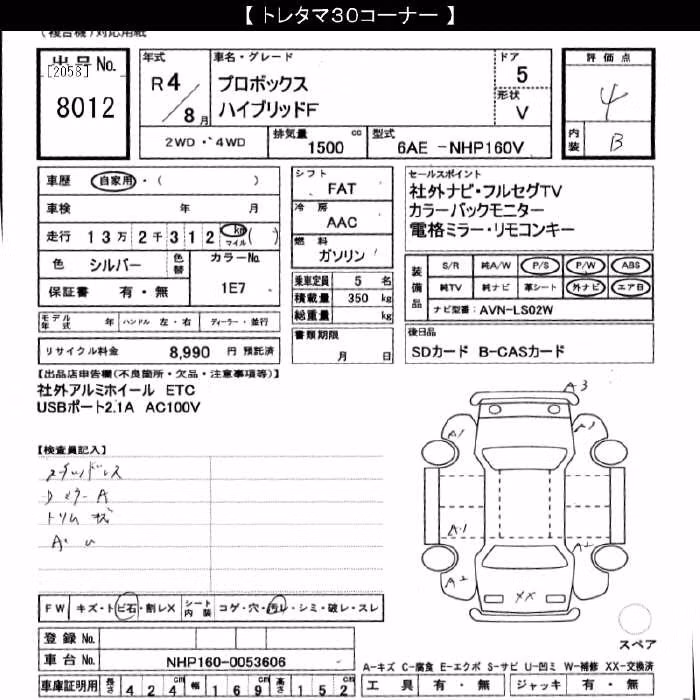 【 トレタマ30コーナー 】
(複合機)対応用紙
出品No.
[2058]
8012
年式
R4/8月
車名・グレード
プロボックス
ハイブリッドF
ドア
5
形状
V
評価点
4
内装
B
2WD・4WD
排気量 1500 cc
型式 6AE -NHP160V
車歴 自家用・( )
車検 年 月
走行 13万2千312 km マイル ( )
色 シルバー 色替 カラーNo. 1E7
保証書 有・無
モデル年式 年 ハンドル 左・右 ディーラー・並行
リサイクル料金 8,990 円 預託済
シフト
FAT
冷房
AAC
燃料
ガソリン
乗車定員 5 名
積載量 350 kg
総重量 kg
書類期限
月 日
セールスポイント
社外ナビ・フルセグTV
カラーバックモニター
電格ミラー・リモコンキー
装備品
S/R 純A/W P/S P/W ABS
純TV 純ナビ 革シート 外ナビ エアB
ナビ型番: AVN-LS02W
後日品
SDカード B-CASカード
【出品店申告欄(不良箇所・欠品・注意事項等)】
社外アルミホイール ETC
USBポート2.1A AC100V
【検査員記入】
ステンバドレス
Dミラー A
トリム キズ
A. U
A3
A1
A1
A1
A2
A2
XX
スペア
FW キズ・トビ石・割レX シート内装 コゲ・穴・汚レ・シミ・破レ・スレ
登録No.
車台No. NHP160-0053606
A-キズ C-腐食 E-エクボ S-サビ U-凹ミ W-補修 XX-交換済
車庫証明用 長さ 424cm 幅 169cm 高さ 152cm
工具 有・無 ジャッキ 有・無